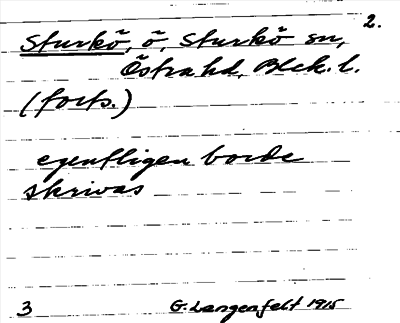 2.
Sturkö, ö, Sturkö sn,
Östra hd, Blek. l.
(forts.)
egentligen borde
skrivas
3 G. Langenfelt 1915